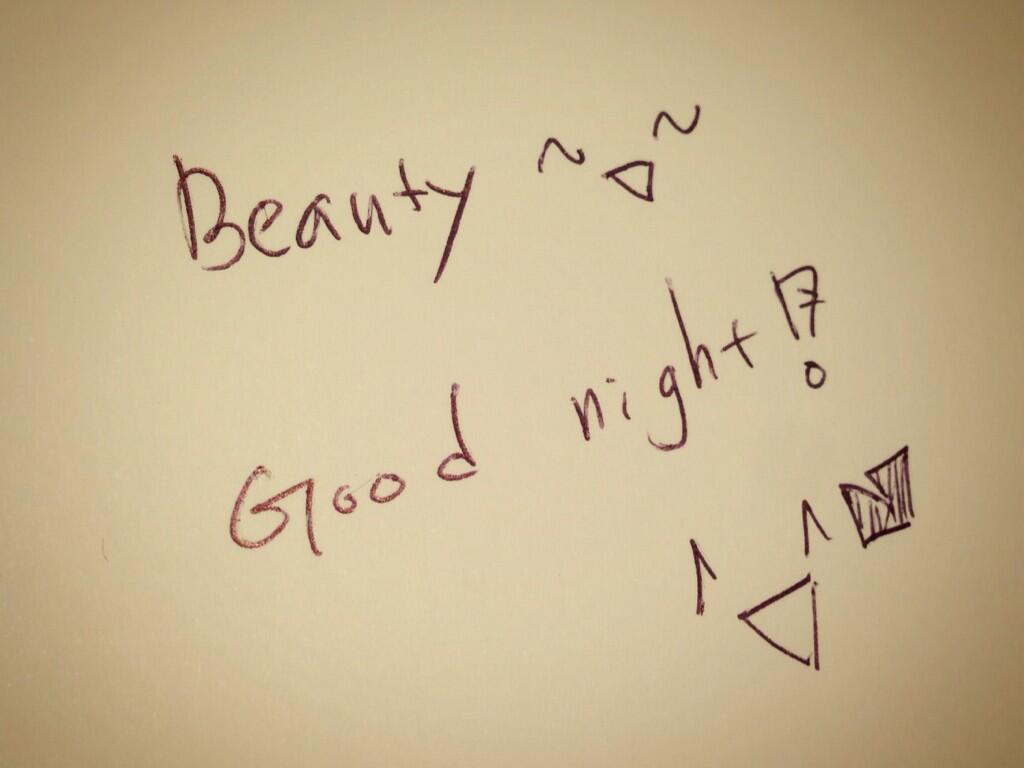 Beauty ~▽~
Good night!
^▽^